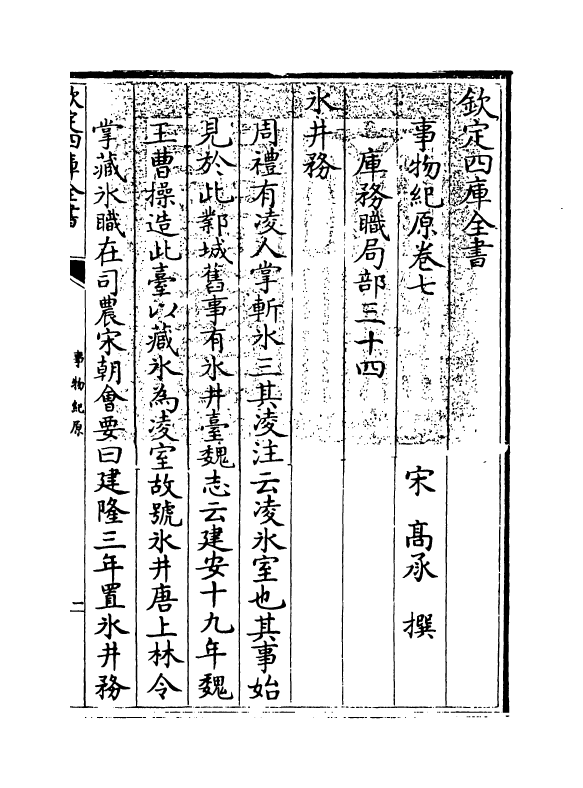 欽定四庫全書
事物紀原卷七
宋 高承 撰
庫務職局部三十四
氷井務
周禮有凌人掌斬氷三其凌注云凌氷室也其事始
見於此鄴城舊事有氷井臺魏志云建安十九年魏
王曹操造此臺以藏氷為凌室故號氷井唐上林令
掌藏氷職在司農宋朝會要曰建隆三年置氷井務
欽定四庫全書
事物紀原